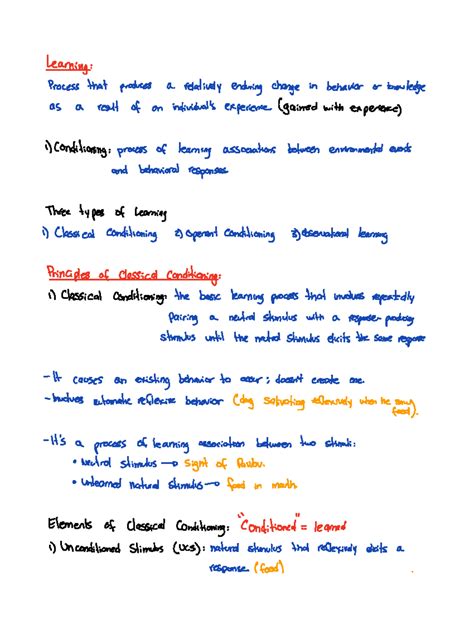 Learning:
Process that produces a relatively enduring change in behavior or knowledge
as a result of an individual's experience (gained with experience)
1) Conditioning: process of learning associations between environmental events
and behavioral responses
Three types of Learning
1) Classical Conditioning 2) Operant Conditioning 3) Observational learning
Principles of Classical Conditioning:
1) Classical Conditioning: the basic learning process that involves repeatedly
pairing a neutral stimulus with a response-producing
stimulus until the neutral stimulus elicits the same response
- It causes an existing behavior to occur; doesn't create one.
- Involves automatic reflexive behavior (dog salivating reflexively when he
food).
- It's a process of learning association between two stimuli:
• Neutral stimulus → sight of Pavlov.
• Unlearned natural stimulus → food in mouth.
Elements of Classical Conditioning: "Conditioned" = learned
1) Unconditioned Stimulus (UCS): natural stimulus that reflexively elicits a
response (food)